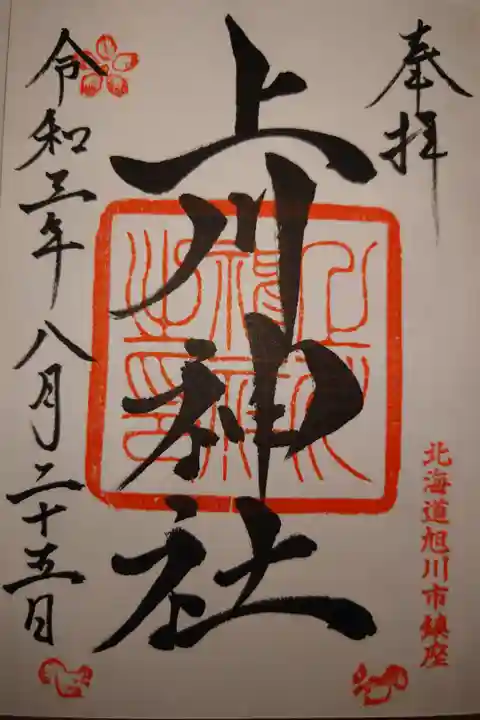 奉拝
北海道旭川市鎮座
上川神社
令和三年八月二十五日
上川神社之印